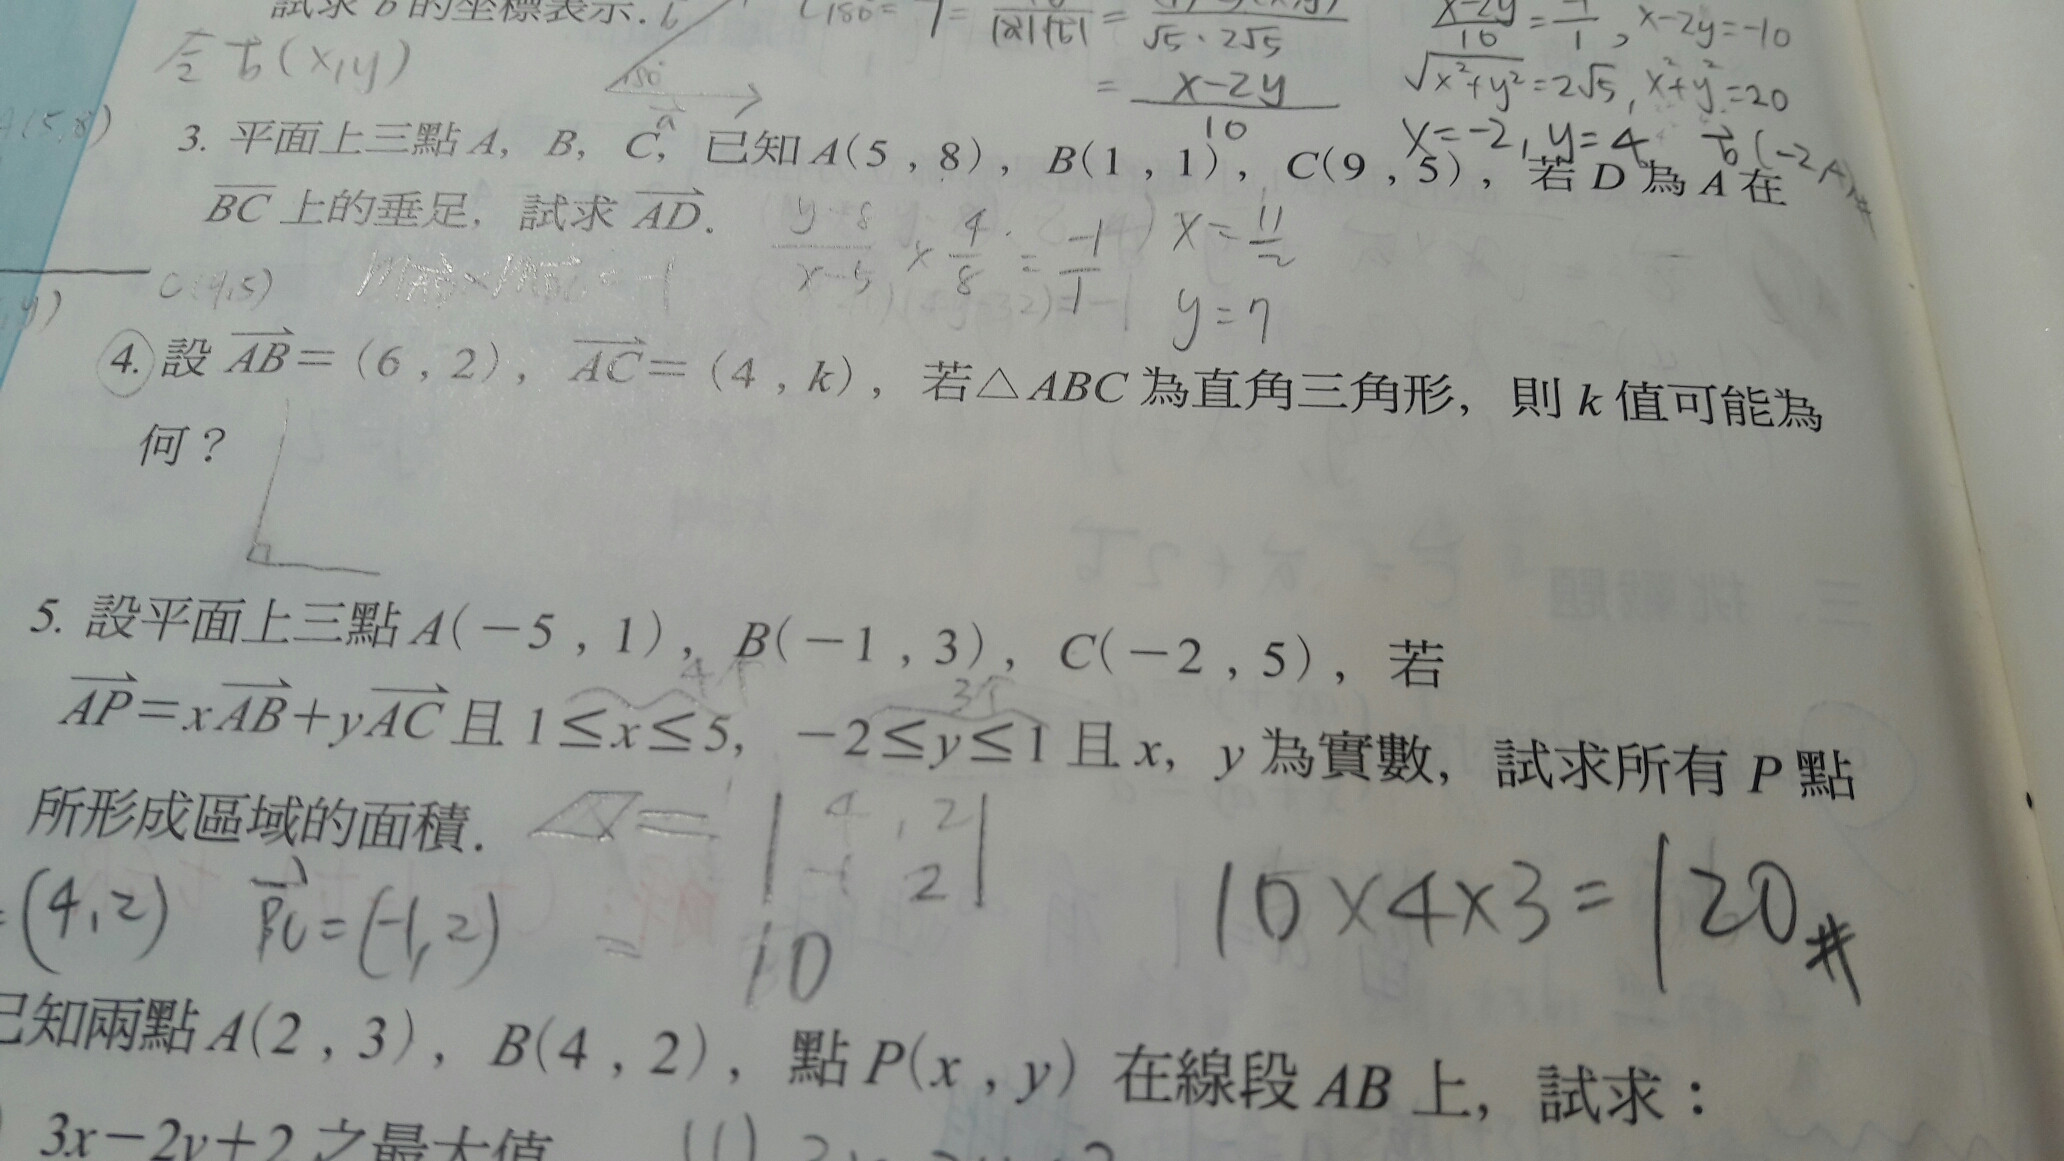 試求 b 的坐標表示.
令 b (x,y)
150°
a
= x-2y / 10
(x-2y)/10 = -1/1 , x-2y=-10
√(x²+y²) = 2√5 , x²+y²=20
x=-2, y=4
3. 平面上三點 A, B, C, 已知 A(5 , 8) , B(1 , 1) , C(9 , 5) , 若 D 為 A 在
BC 上的垂足, 試求 AD.
(y-8)/(x-5) × 4/8 = -1/1
x = 11/2
y=7
C(9,5)
4. 設 AB= (6 , 2) , AC= (4 , k) , 若△ABC 為直角三角形, 則 k 值可能為
何?
5. 設平面上三點 A(-5 , 1) , B(-1 , 3) , C(-2 , 5) , 若
AP=xAB+yAC 且 1≤x≤5, -2≤y≤1 且 x, y 為實數, 試求所有 P 點
所形成區域的面積.
= | 4 , 2 |
| -1 2 |
= 10
10×4×3=120#
=(4,2) BC=(-1,2)
已知兩點 A(2 , 3) , B(4 , 2) , 點 P(x , y) 在線段 AB 上, 試求:
3x-2y+2 之最大值